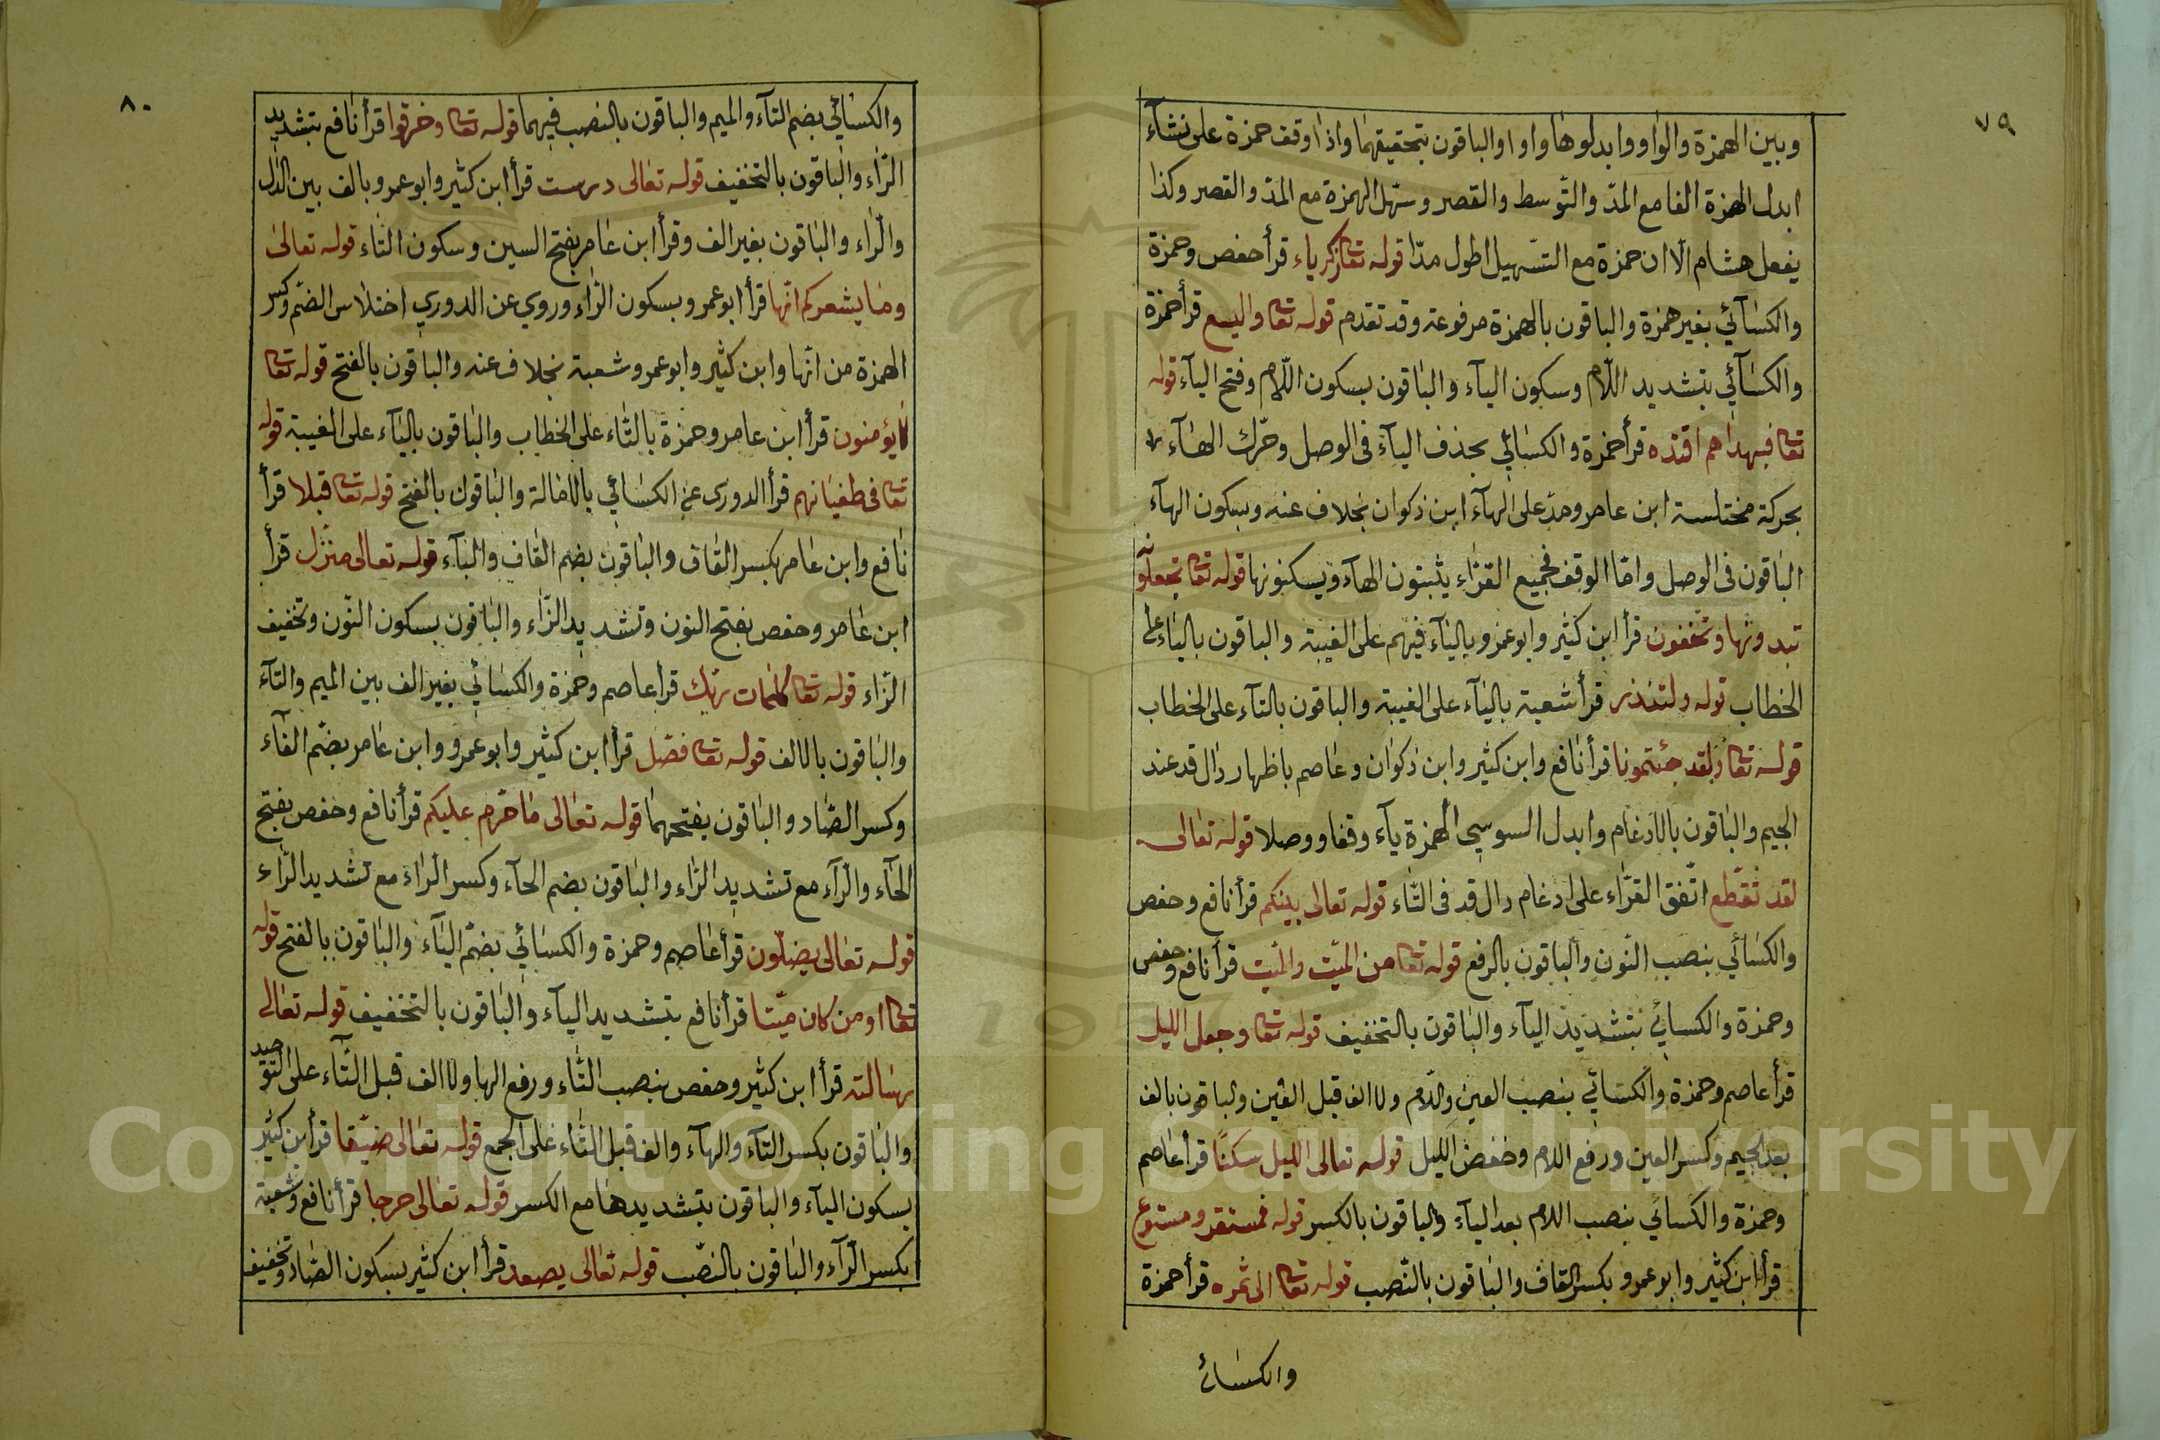 ٧٩
وبين الهمزة والواو وابدلوها واوا والباقون بتحقيقهما واذا وقف حمزة على نشآء
ابدل الهمزة الفا مع المدّ والتّوسط والقصر وسهّل الهمزة مع المدّ والقصر وكذا
يفعل هشام الّا ان حمزة مع التسهيل اطول مدّا قوله تعا زكرياء قرأ حفص وحمزة
والكسآئي بغير همزة والباقون بالهمزة مرفوعة وقد تقدم قوله تعا واليسع قرأ حمزة
والكسآئي بتشديد اللّام وسكون اليآء والباقون بسكون اللّام وفتح اليآء قوله
تعا فبهداهم اقتده قرأ حمزة والكسائي بحذف اليآء فى الوصل وحرّك الهآء
بحركة مختلسة ابن عامر ومدّ على الهآء ابن ذكوان بخلاف عنه وسكون الهآء
الباقون فى الوصل وامّا الوقف فجميع القرّاء يثبتون الهآء ويسكنونها قوله تعا تجعلونه
تبدونها وتخفون قرأ ابن كثير وابو عمرو باليآء فيهم على الغيبة والباقون بالياء على
الخطاب قوله ولتنذر قرأ شعبة باليآء على الغيبة والباقون بالتآء على الخطاب
قوله تعا ولقد جئتمونا قرأ نافع وابن كثير وابن ذكوان وعاصم باظهار دال قد عند
الجيم والباقون بالادغام وابدل السوسي الهمزة يآء وقفا ووصلا قوله تعالى
لقد تقطّع اتّفق القرّاء على ادغام دال قد فى التّاء قوله تعالى بينكم قرأ نافع وحفص
والكسائي بنصب النّون والباقون بالرفع قوله تعا من الميّت والميّت قرأ نافع وحفص
وحمزة والكسائي بتشديد اليآء والباقون بالتخفيف قوله تعا وجعل الليل
قرأ عاصم وحمزة والكسائي بنصب العين واللّام ولا الف قبل العين والباقون بالف
بعد الجيم وكسر العين ورفع اللام وخفض الليل قوله تعالى الليل سكنًا قرأ عاصم
وحمزة والكسائي بنصب اللام بعد اليآء والباقون بالكسر قوله فمستقر ومستودع
قرأ ابن كثير وابو عمرو بكسر القاف والباقون بالنّصب قوله تعا الى ثمره قرأ حمزة
والكسائ
٨٠
والكسائي بضم التآء والميم والباقون بالنصب فيهما قوله تعا وخرقوا قرأ نافع بتشديد
الرّاء والباقون بالتخفيف قوله تعالى درست قرأ ابن كثير وابو عمرو بالف بين الدّال
والرّاء والباقون بغير الف وقرأ ابن عامر بفتح السين وسكون التاء قوله تعالى
وما يشعركم انّها قرأ ابو عمرو بسكون الرّاء وروي عن الدوري اختلاس الضمّ وكسر
الهمزة من انّها وابن كثير وابو عمرو وشعبة بخلاف عنه والباقون بالفتح قوله تعا
لا يؤمنون قرأ ابن عامر وحمزة بالتّاء على الخطاب والباقون باليآء على الغيبة قوله
تعا فى طغيانهم قرأ الدورى عن الكسائي بالامالة والباقون بالفتح قوله تعا قبلا قرأ
نافع وابن عامر بكسر القاف والباقون بضم القاف والبآء قوله تعالى منزّل قرأ
ابن عامر وحفص بفتح النون وتشديد الزّاء والباقون بسكون النّون وتخفيف
الزّاء قوله تعا كلمات ربّك قرأ عاصم وحمزة والكسائي بغير الف بين الميم والتآء
والباقون بالالف قوله تعا فصّل قرأ ابن كثير وابو عمرو وابن عامر بضّم الفآء
وكسر الصّاد والباقون بفتحهما قوله تعالى ما حرّم عليكم قرأ نافع وحفص بفتح
الحآء والرّآء مع تشديد الرّاء والباقون بضم الحآء وكسر الرّاء مع تشديد الرّاء
قوله تعالى يضلّون قرأ عاصم وحمزة والكسائي بضمّ اليآء والباقون بالفتح قوله
تعا او من كان ميّتا قرأ نافع بتشديد اليآء والباقون بالتخفيف قوله تعالى
رسالته قرأ ابن كثير وحفص بنصب التّاء ورفع الها ولا الف قبل التّاء على التّوحيد
والباقون بكسر التآء والهآء والف قبل التّاء على الجمع قوله تعالى ضيّقا قرأ ابن كثير
بسكون اليآء والباقون بتشديدها مع الكسر قوله تعالى حرجا قرأ نافع وشعبة
بكسر الرّآء والباقون بالنصّب قوله تعالى يصعد قرأ ابن كثير بسكون الصّاد وتخفيف
Copyright © King Saud University